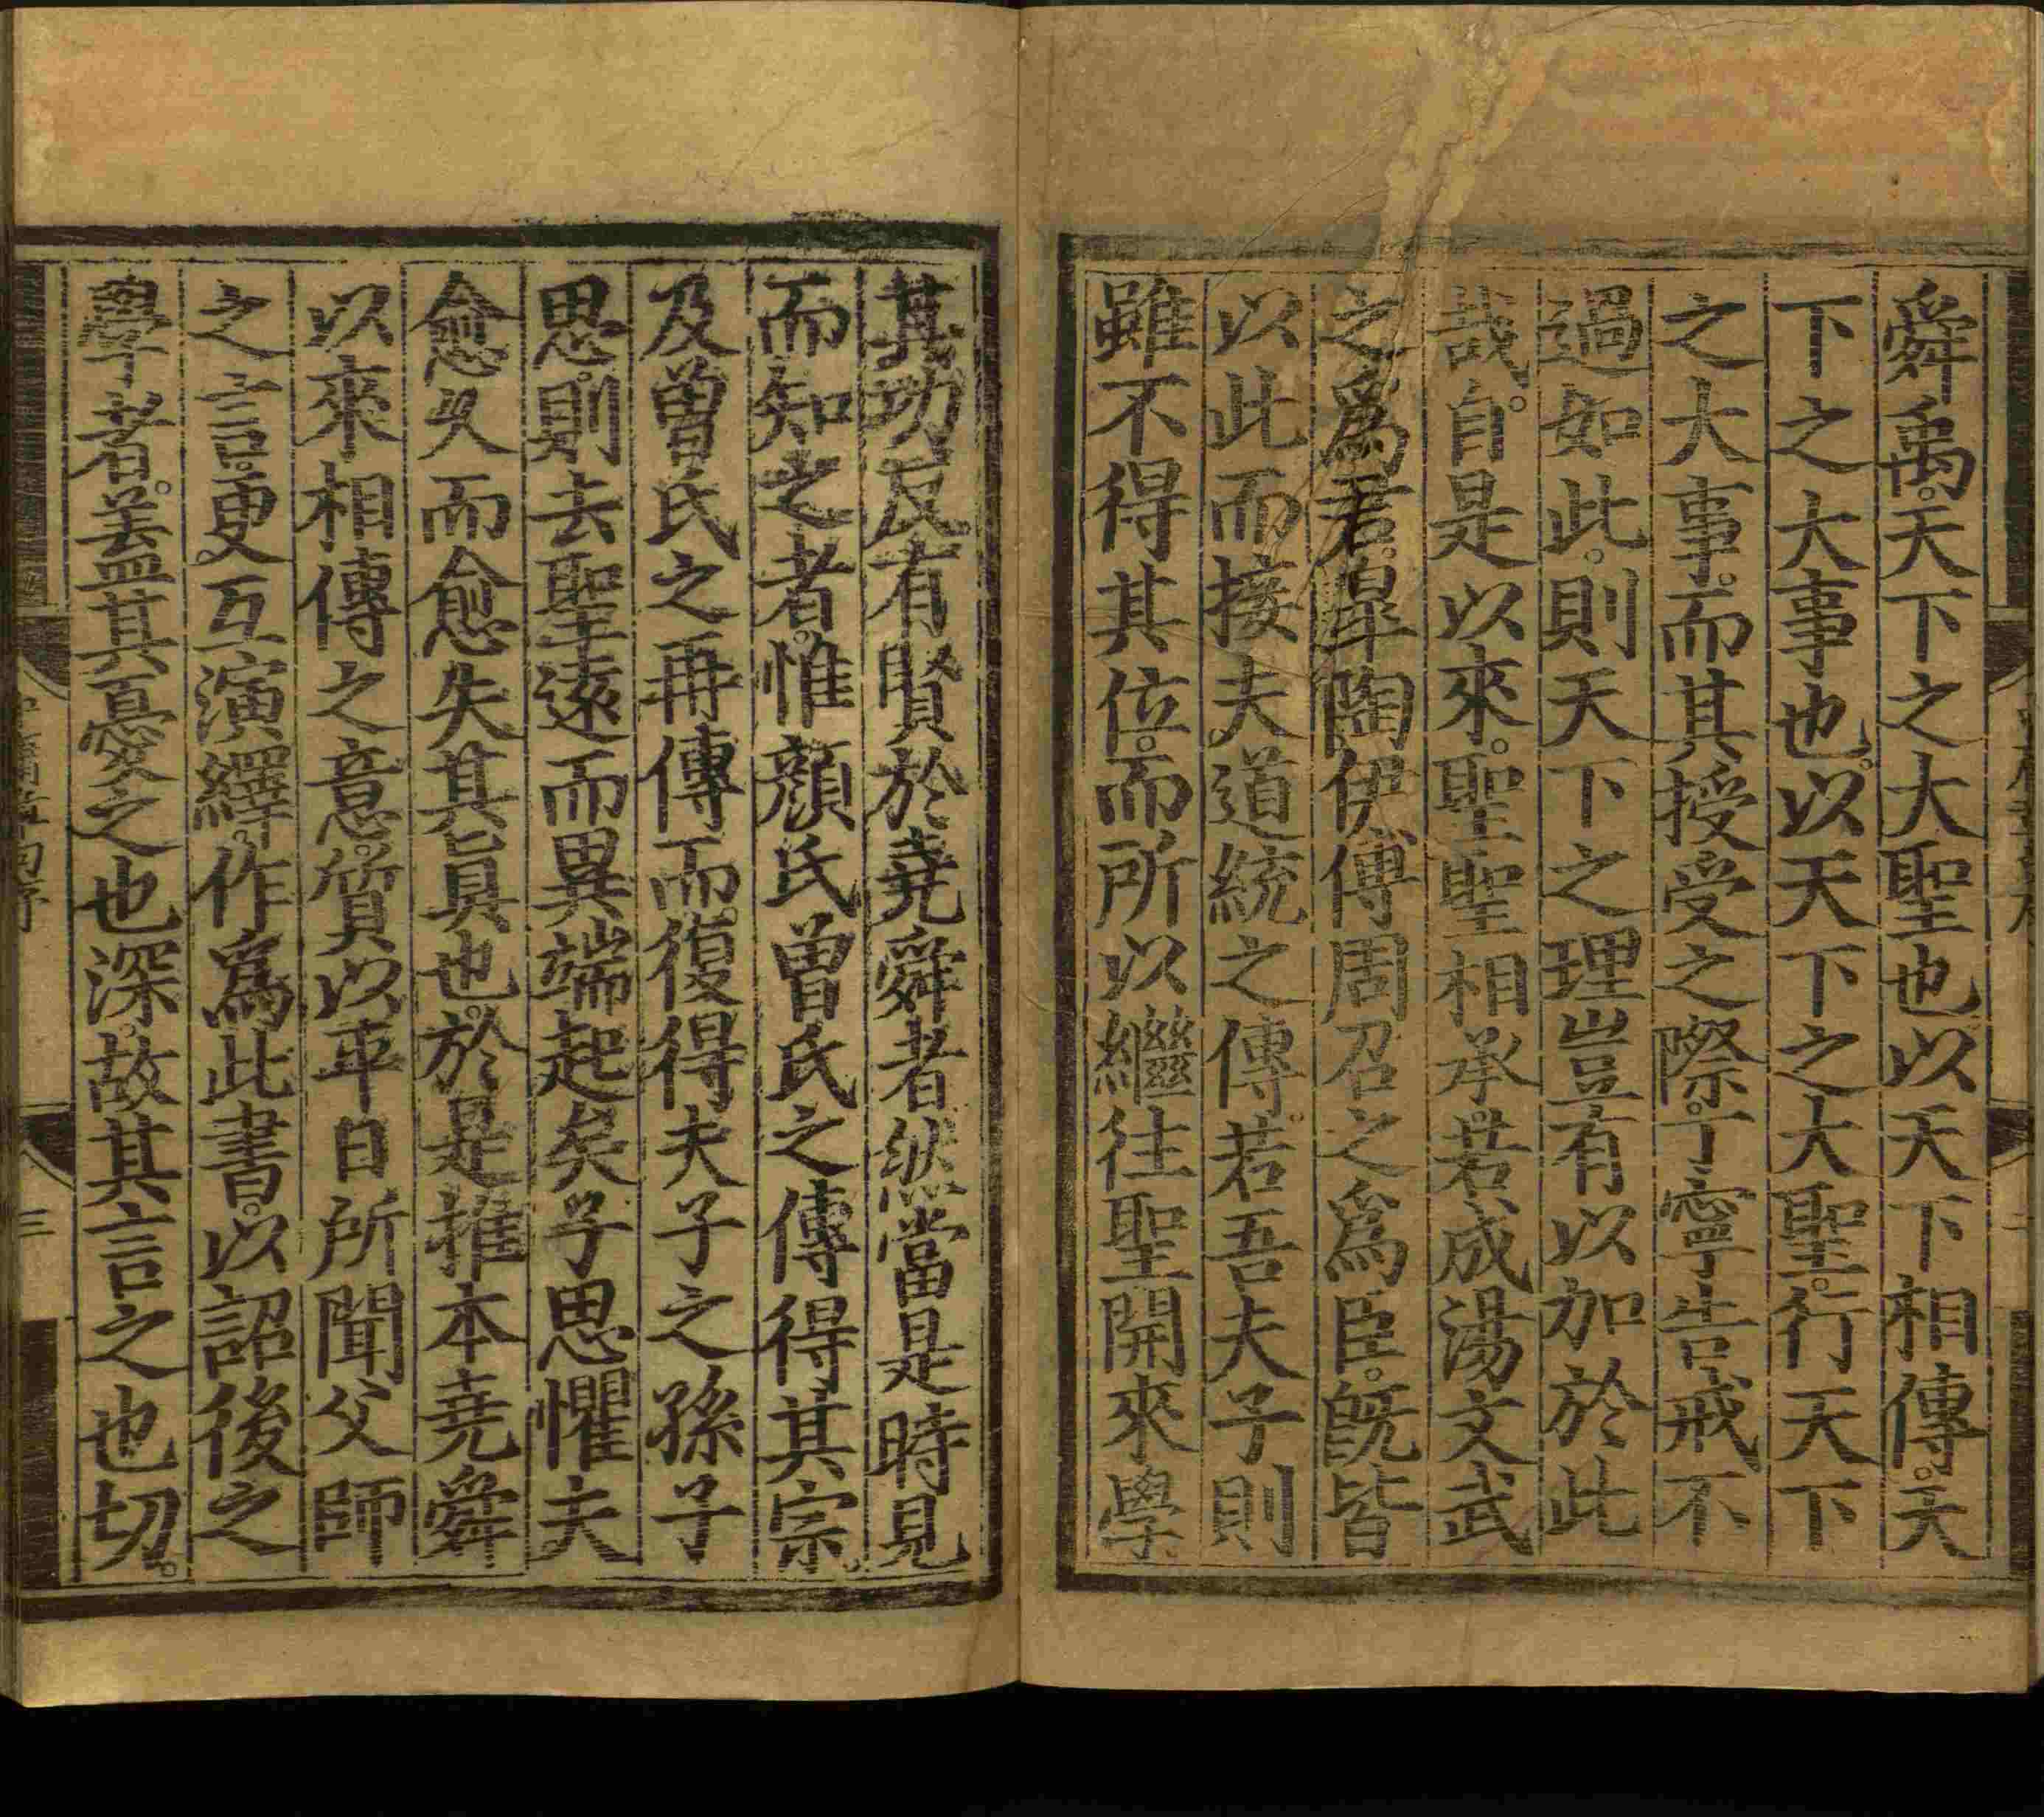 舜禹。天下之大聖也。以天下相傳。天
下之大事也。以天下之大聖。行天下
之大事。而其授受之際。丁寧告戒。不
過如此。則天下之理。豈有以加於此
哉。自是以來。聖聖相承。若成湯文武
之爲君。皐陶伊傅周召之爲臣。旣皆
以此而接夫道統之傳。若吾夫子。則
雖不得其位。而所以繼往聖開來學。
其功反有賢於堯舜者。然當是時。見
而知之者。惟顏氏曾氏之傳得其宗。
及曾氏之再傳。而復得夫子之孫子
思。則去聖遠而異端起矣。子思懼夫
愈久而愈失其眞也。於是推本堯舜
以來相傳之意。質以平日所聞父師
之言。更互演繹。作爲此書。以詔後之
學者。蓋其憂之也深。故其言之也切。
中庸章句序
三